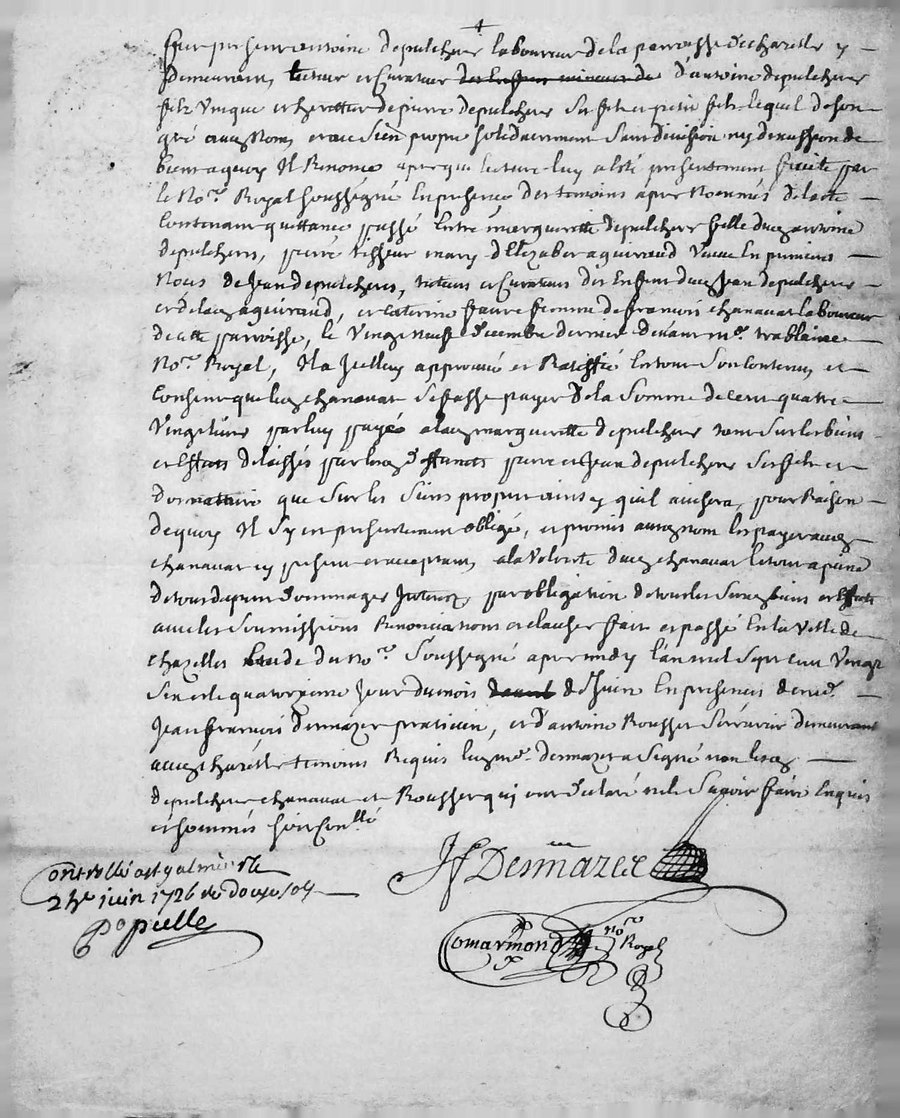 fut present antoine depulchere laboureur de la parroisse de chazelle y
demeurant, tuteur et curateur des enfans mineurs de d'antoine depulchere
filz unique et heretier de pierre depulchere lequel de son
gré aux noms et au sien propre solidairement sans division ny discussion de
biens a quoy Il Renonce apres que lecture luy a esté presentement faicte par
le No.re Royal soussigné En presence des temoins apres Nommés de lacte
Contenant quittance passé Entre marguerite depulchere fille dudt antoine
depulchere, pierre tisseur mary d'Elizabet aguiraud veuve En premiere
Nous de Jean depulchere, tuteur et Curateur des Enfans dudt Jean depulchere
et de ladt aguiraud, et caterine faure femme de francois chanavat laboureur
de cette parroisse, le vingt neuf decembre dernier devant m.e trablaine
No.re Royal, Il a Jcelluy approuvé et Ratiffié En tout son contenu et
Consent que ledt chanavat se fasse payer de la somme de cent quatre
vingt livres par luy payée a ladt marguerite depulchere tant sur les biens
et Effects delaissés par lesdts deffuncts pierre et Jean depulchere
que sur les siens propres ainsy quil avisera, pour Raison
de quoy Il s'y est presentement obligé, et promis auxdts noms les payer audt
chanavat cy present et acceptant, a la volonté dudt chanavat le tout a peine
de tous depens dommages Jnterets, par obligation de tous les susdts biens et Effects
avec les soumissions Renonciations et clauses fait et passé En la ville de
chazelles Etude du no.re soussigné apres midy l'an mil sept cent vingt
six et le quatorzieme Jour du mois de Juin En presence de me.
Jean francois desmazes praticien, et d'antoine Rousset serrurier demeurant
audt chazelle temoins Requis ledt me. desmazes a signé non lesdts
depulchere chanavat et Rousset qui ont declaré ne le scavoir faire Enquis
et sommés soit Con.llé
Jf Desmazes
Controllé a st galmier le
24e juin 1726 Re douze sols
Popielle
Comarmond
No.re
Royal